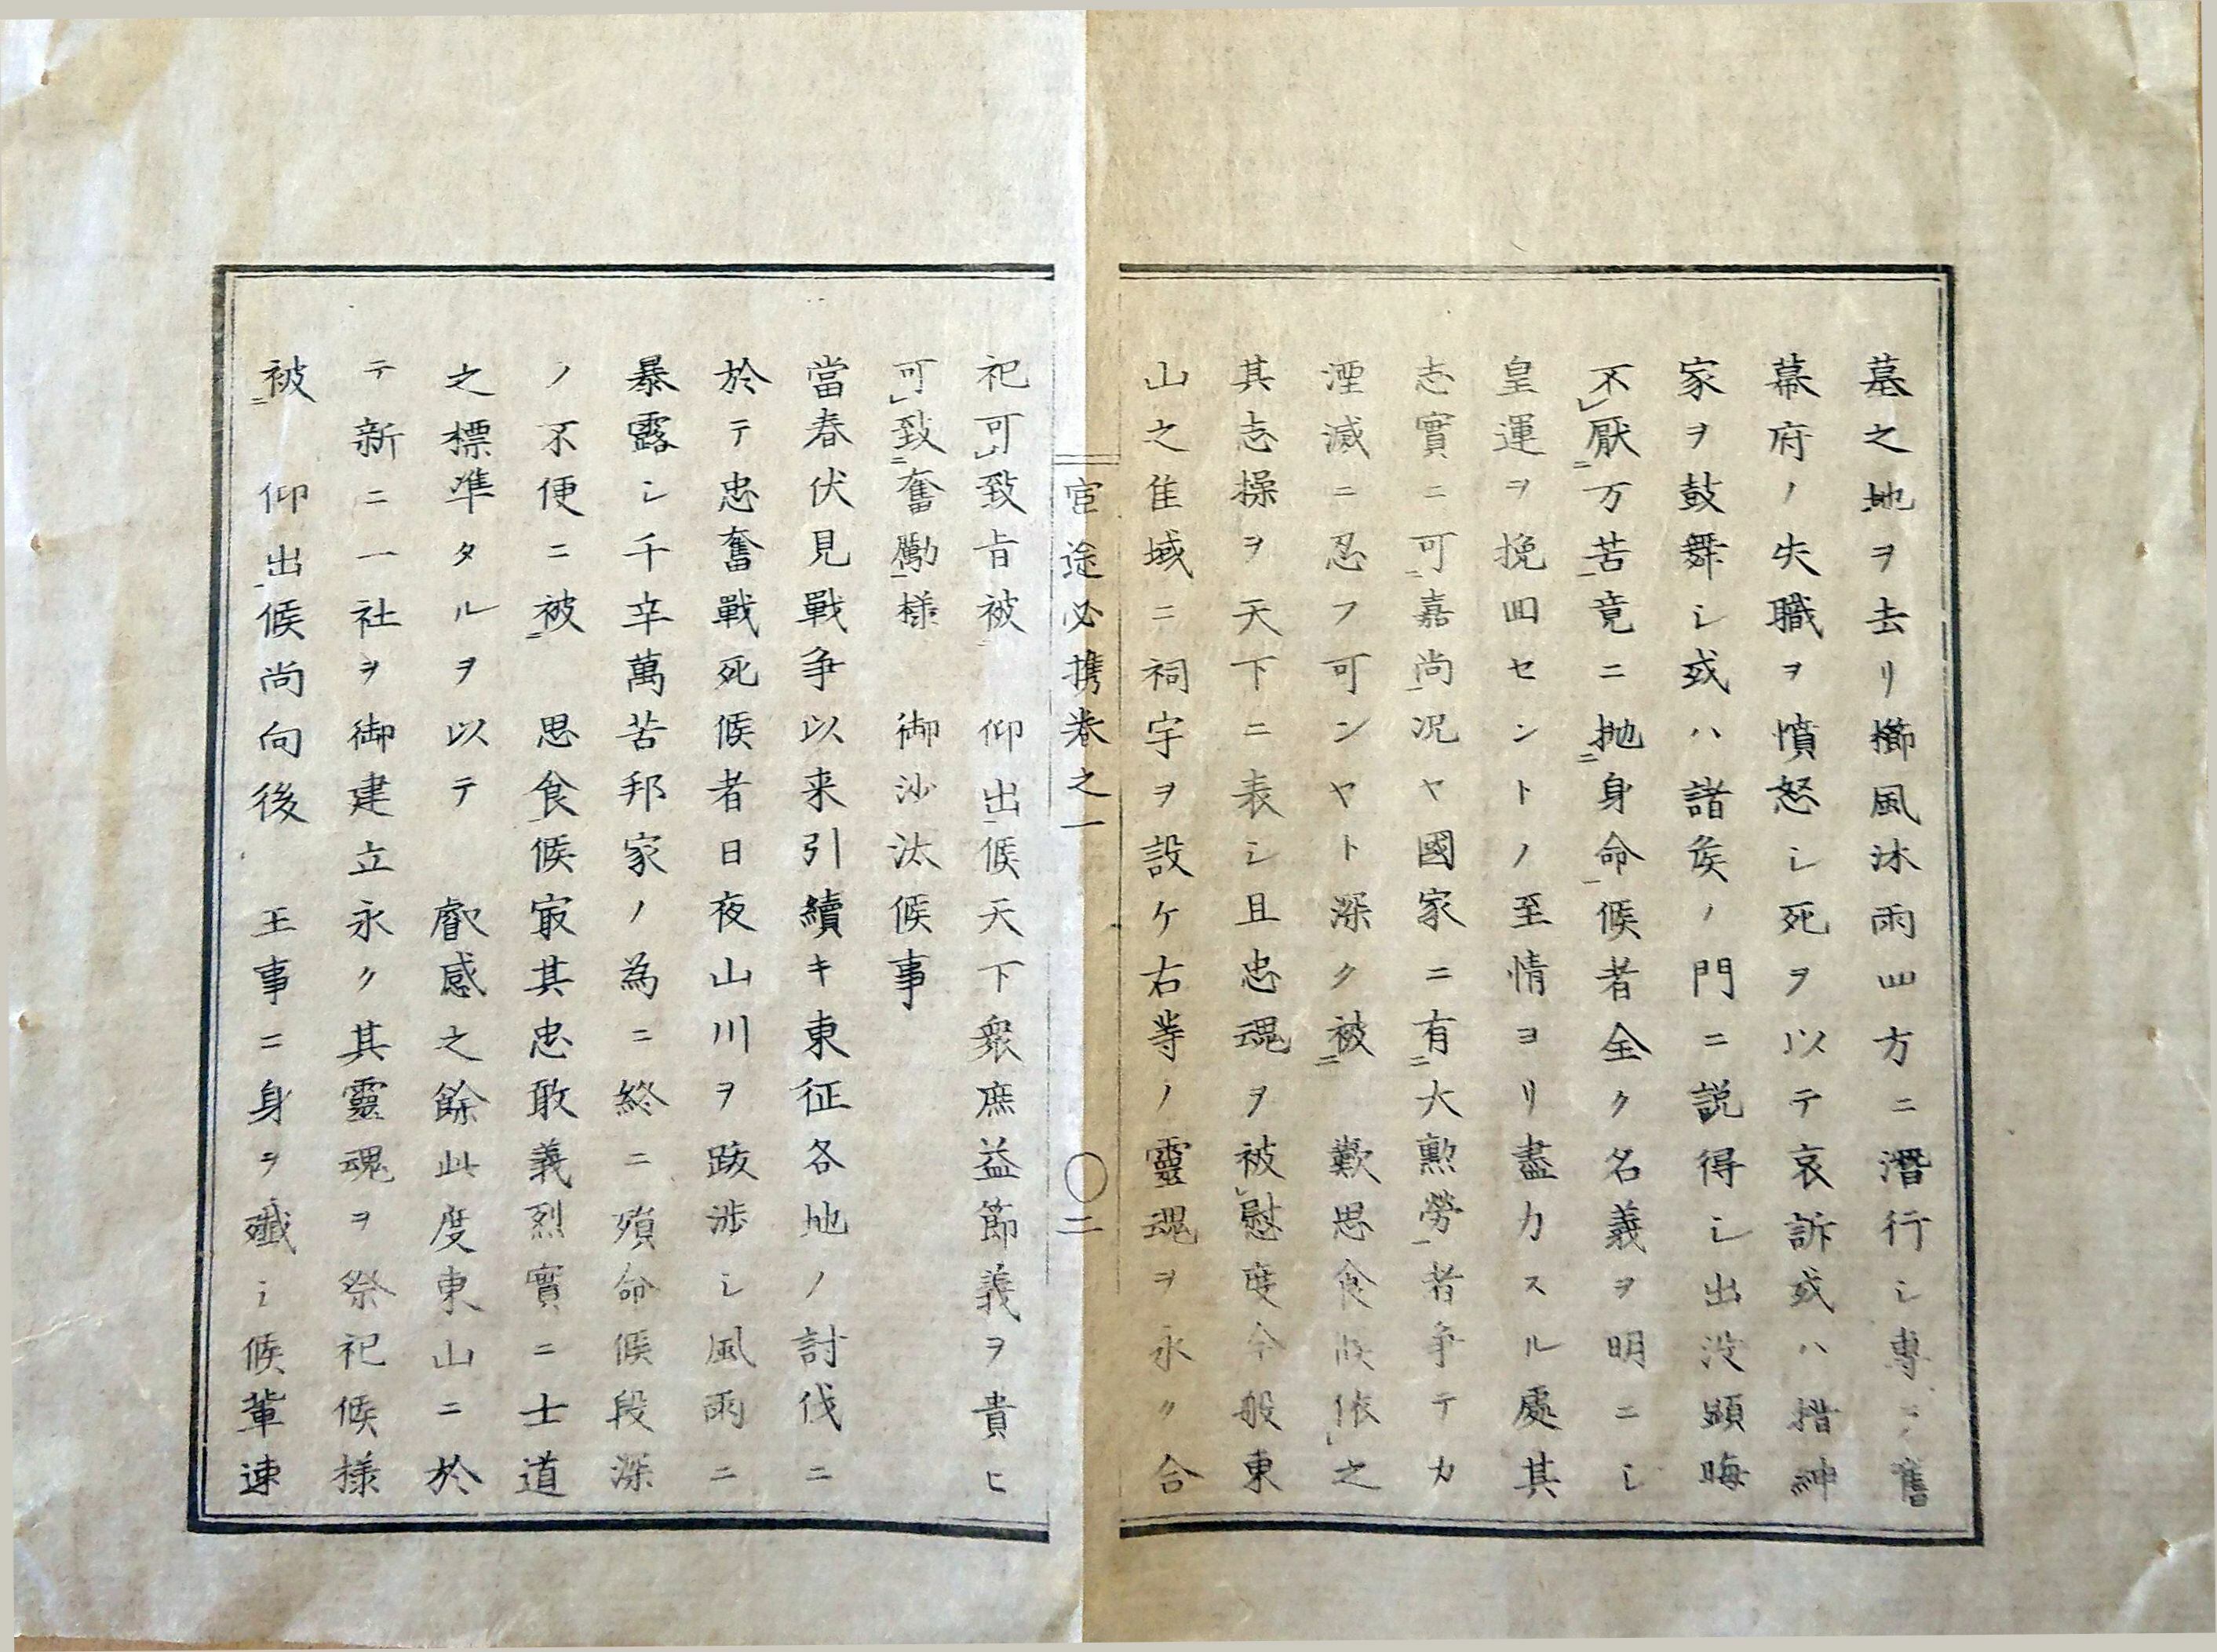 墓之地ヲ去リ櫛風沐雨四方ニ潛行シ專ラ舊
幕府ノ失職ヲ憤怒シ死ヲ以テ哀訴或ハ搢紳
家ヲ鼓舞シ或ハ諸矦ノ門ニ説得シ出没顕晦
不レ厭二万苦一竟ニ抛二身命一候者全ク名義ヲ明ニシ
皇運ヲ挽回セントノ至情ヨリ盡力スル處其
志實ニ可二嘉尚一况ヤ國家ニ有二大勲勞一者争テカ
湮滅ニ忍フ可ンヤト深ク被二 歎思食候依レ之
其志操ヲ天下ニ表シ且忠魂ヲ被レ慰度今般東
山之隹域ニ祠宇ヲ設ケ右等ノ靈魂ヲ永ク合
官途必携巻之一 〇二
祀可レ致㫖被二 仰出一候天下衆庶益節義ヲ貴ヒ
可レ致二奮勵一様 御沙汰候事
當春伏見戰争以来引續キ東征各地ノ討伐ニ
於テ忠奮戰死候者日夜山川ヲ跋渉シ風雨ニ
暴露シ千辛萬苦邦家ノ為ニ終ニ殞命候段深
ノ不便ニ被二 思食一候㝡其忠敢義烈實ニ士道
之標準タルヲ以テ 叡感之餘此度東山ニ於
テ新ニ一社ヲ御建立永ク其靈魂ヲ祭祀候様
被二 仰出一候尚向後 王事ニ身ヲ殱シ候輩速